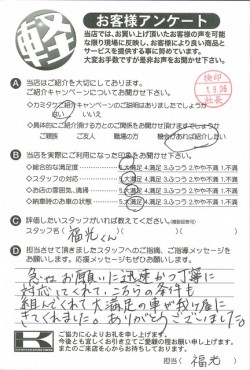 軽
お客様アンケート
当店では、お買い上げ頂いたお客様の声を可能
な限り現場に反映し、お客様により良い商品と
サービスを提供する事に努めています。
大変お手数ですが是非お声をお聞かせ下さい。
検印
1.9.06
社長
A 当店はご紹介を大切にしております。
ご紹介キャンペーンについてお聞かせ下さい。
・カミタケご紹介キャンペーンのご説明はありましたでしょうか
はい いいえ
・具体的にご紹介頂ける方との関係をお聞かせ頂けますでしょうか
ご親戚 ご友人 職場の方 機会があれば紹介したい
B 当店を実際にご利用になった印象をお聞かせ下さい。
・総合的な満足度 5.大満足 4.満足 3.ふつう 2.やや不満 1.不満
・スタッフの対応 5.大満足 4.満足 3.ふつう 2.やや不満 1.不満
・お店の雰囲気、清掃 5.大満足 4.満足 3.ふつう 2.やや不満 1.不満
・納車時のお車の状態 5.大満足 4.満足 3.ふつう 2.やや不満 1.不満
C 評価したいスタッフがいれば教えてください。(複数回答可)
スタッフ名( 福光くん )
D 担当させて頂きましたスタッフへのご指摘、ご指導メッセージを
お願いします。応援メッセージもお待ちしております。
急なお願いに迅速かつ丁寧に
対応してくれて、こちらの条件も
組んでくれて大満足の車が我が家に
きてくれました。ありがとうございました。
K
ご協力に心よりお礼を申し上げます。
今後とも宜しくお引き立てご愛顧の程お願い申し上げます。
またのご来店を心からお待ちしております。
担当 福光